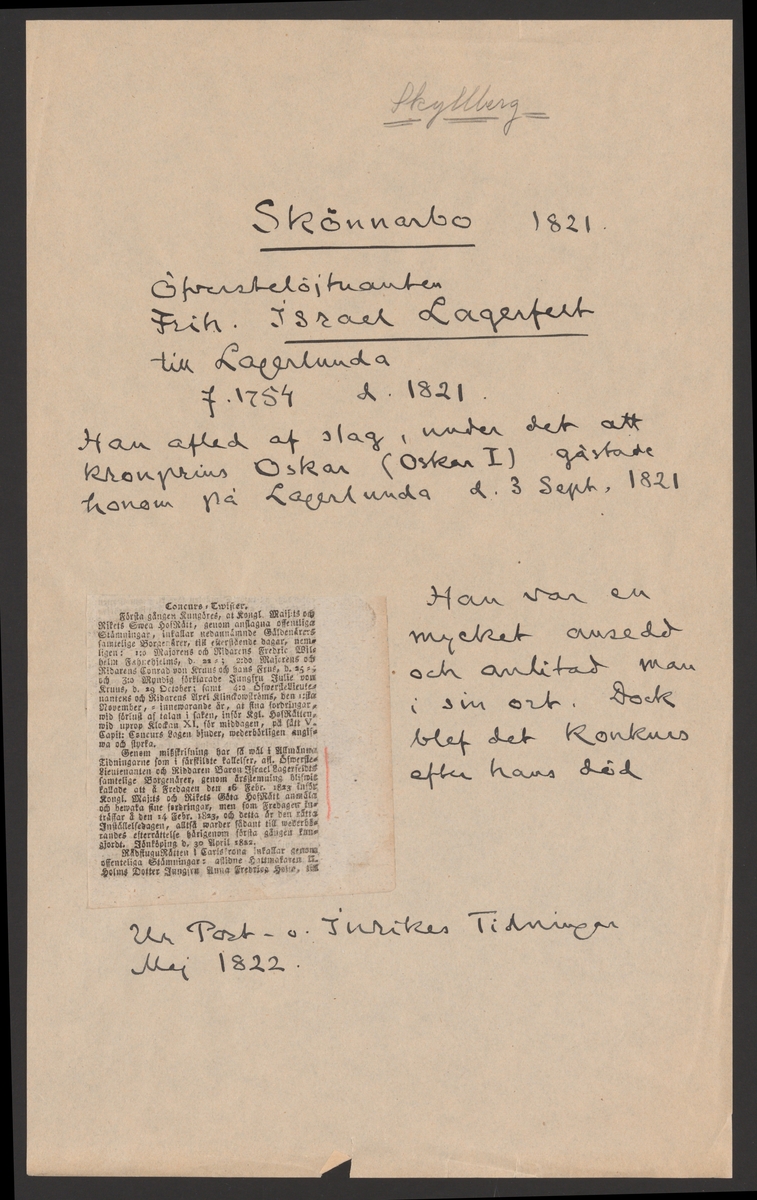 Skyllberg
Skönnarbo 1821.
Öfverstelöjtnanten
Frih. Israel Lagerfelt
till Lagerlunda
f. 1754 d. 1821.
Han afled af slag, under det att
kronprins Oskar (Oskar I) gästade
honom på Lagerlunda d. 3 Sept. 1821
Concurs-Twister.
Första gången Kungöres, at Kongl. Maj:ts och
Rikets Swea HofRätt, genom anslagna offentliga
Stämningar, inkallar nedannämnde Gäldenärers
samtelige Borgenärer, till efterstående dagar, nem-
ligen: 1:o Majorens och Riddarens Fredric Wil-
helm Fahnehjelms, d. 22; 2:do Majorens och
Riddarens Conrad von Kruus och hans Frus, d. 25;
och 3:o Myndig förklarade Jungfru Julie von
Kruus, d. 29 October; samt 4:o ÖfwersteLieute-
nantens och Riddarens Axel Klinckowströms, den 1:sta
November, innewarande år, at sina fordringar,
wid förlust af talan i saken, inför Kgl. HofRätten,
wid uprop Klockan XI. för middagen, på sätt V.
Capit: Concurs Lagen bjuder, wederbörligen angif-
wa och styrka.
Genom misskrifning har så wäl i Allmänna
Tidningarne som i särskildte kallelser, afl. Öfwerste-
Lieutenanten och Riddaren Baron Israel Lagerfeldts
samtelige Borgenärer, genom årsstemning blifwit
kallade att å Fredagen den 16 Febr. 1823 inför
Kongl. Maj:ts och Rikets Göta HofRätt anmäla
och bewaka sine fordringar, men som Fredagen in-
träffar å den 14 Febr. 1823, och detta är den rätta
Inställelsedagen, alltså warder sådant till wederbö-
randes efterrättelse härigenom första gången kun-
gjordt. Jönköping d. 30 April 1822.
RådstuguRätten i Carlscrona inkallar genom
offenteliga Stämningar: aflidne Hattmakaren
Holms Dotter Jungfru Anna Fredrica Holm,
Han var en
mycket ansedd
och anlitad man
i sin ort. Dock
blef det konkurs
efter hans död
Ur Post- o. Inrikes Tidningar
Maj 1822.